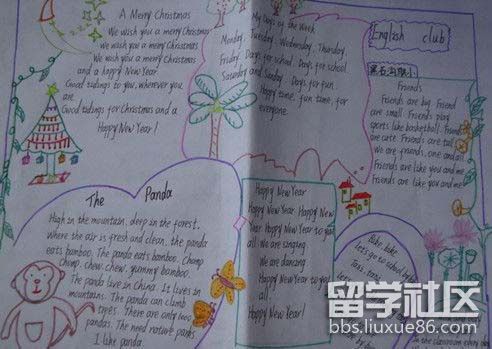 A Merry Christmas
We wish you a merry Christmas
We wish you a merry Christmas
We wish you a merry Christmas
and a happy New Year
Good tidings to you, wherever you
are
Good tidings for Christmas and a
Happy New Year!
My Days of the Week
Monday, Tuesday, Wednesday, Thursday
Friday. Days for school. Days for school
Saturday and Sunday. Days for fun
Happy time, fun time, for
everyone.
English club
Friends
Friends are big. Friend
are small. Friends play
sports like basketball. Friends
are cute. Friends are tall
We are friends, one and all
Friends are like you and me
Friends are like you and me
The Panda
High in the mountain, deep in the forest.
Where the air is fresh and clean, the panda
eats bamboo. The panda eats bamboo. Chomp
Chomp, chew, chew, yummy bamboo.
The panda live in China. It lives in
mountains. The panda can climb
trees. There are only
pandas. The need nature parks
I like panda.
Happy New Year
Happy New Year Happy New
Year Happy New Year to you
all We are singing
We are dancing
Happy New Year to you
all.
Happy New Year!
Bike, bike
let's go to school by bike
Taxi, taxi
in the classroom every day
留学社区
bbs.liuxue86.com